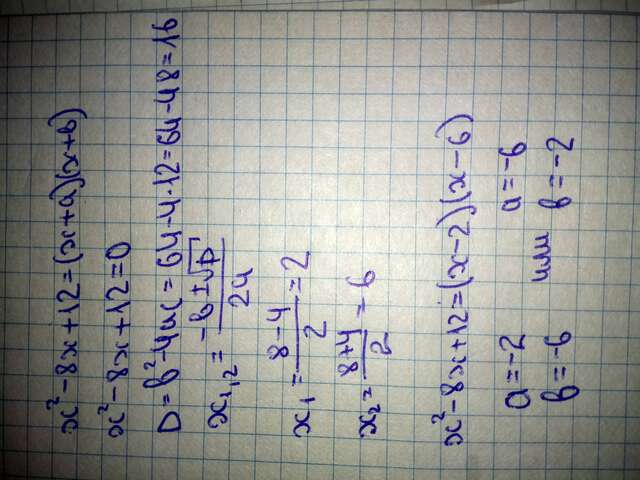 x² - 8x + 12 = (x + a)(x + b)
x² - 8x + 12 = 0
D = b² - 4ac = 64 - 4 · 12 = 64 - 48 = 16
x₁,₂ = (-b ± √D) / 24
x₁ = (8 - 4) / 2 = 2
x₂ = (8 + 4) / 2 = 6
x² - 8x + 12 = (x - 2)(x - 6)
a = -2 a = -6
или
b = -6 b = -2